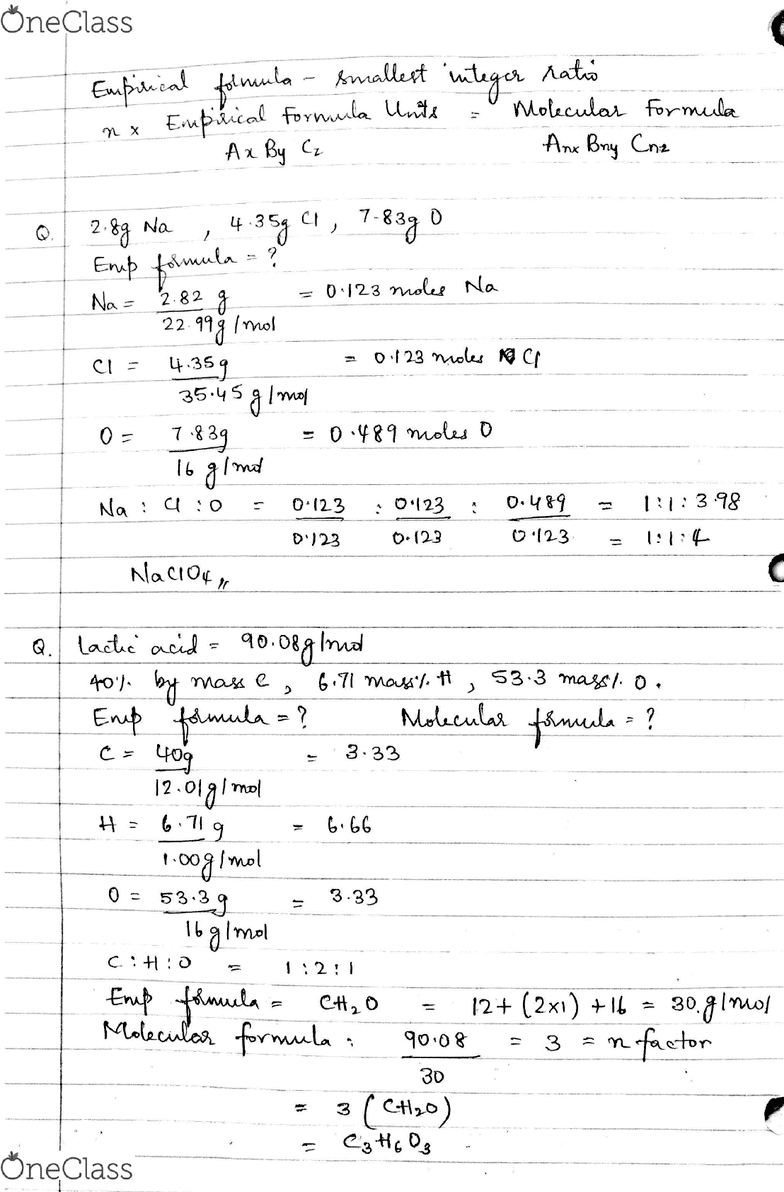 OneClass
Empirical formula - smallest integer ratio
n x Empirical Formula Units = Molecular Formula
Ax By Cz Anx Bny Cnz
Q. 2.8g Na , 4.35g Cl , 7.83g O
Emp formula = ?
Na = 2.82 g = 0.123 moles Na
22.99g/mol
Cl = 4.35g = 0.123 moles Cl
35.45 g/mol
O = 7.83g = 0.489 moles O
16 g/mol
Na : Cl : O = 0.123 : 0.123 : 0.489 = 1:1:3.98
0.123 0.123 0.123 = 1:1:4
NaClO4
Q. Lactic acid = 90.08g/mol
40% by mass C , 6.71 mass% H , 53.3 mass% O.
Emp formula = ? Molecular formula = ?
C = 40g = 3.33
12.01g/mol
H = 6.71 g = 6.66
1.00g/mol
O = 53.3g = 3.33
16g/mol
C : H : O = 1:2:1
Emp formula = CH2O = 12+(2x1)+16 = 30.g/mol
Molecular formula : 90.08 = 3 = n factor
30
= 3(CH2O)
= C3H6O3
OneClass